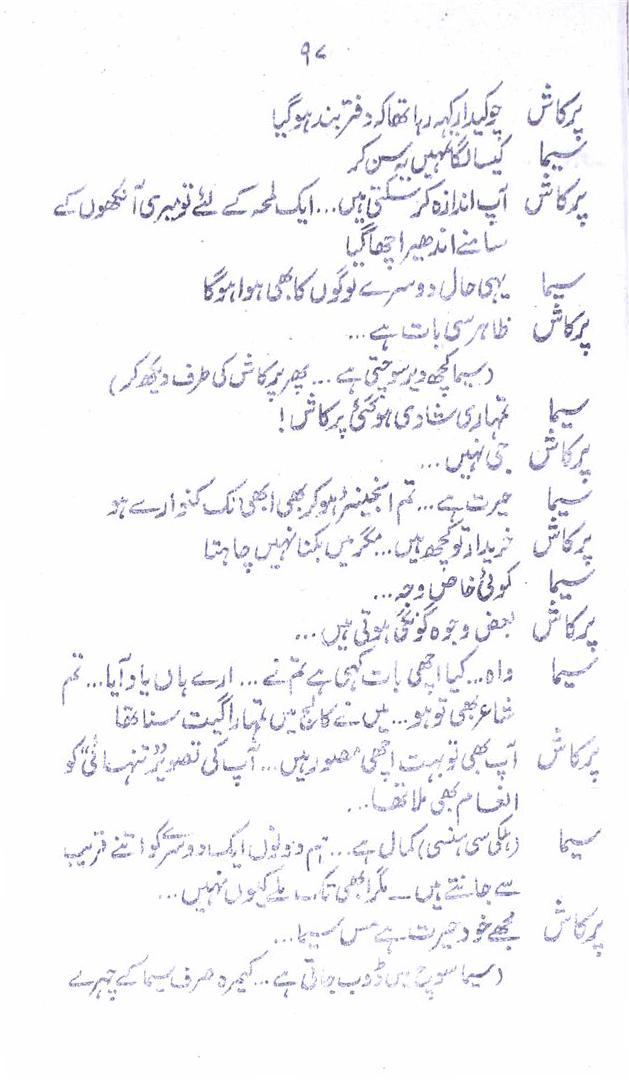 ۹۷
پرکاش چوکیدار کہہ رہا تھا کہ دفتر بند ہو گیا
سیما کیسا لگا تمہیں یہ سن کر
پرکاش آپ اندازہ کر سکتی ہیں... ایک لمحہ کے لئے تو میری آنکھوں کے
سامنے اندھیرا چھا گیا
سیما یہی حال دوسرے لوگوں کا بھی ہوا ہوگا
پرکاش ظاہر سی بات ہے...
(سیما کچھ دیر سوچتی ہے... پھر پرکاش کی طرف دیکھ کر)
سیما تمہاری شادی ہو گئی پرکاش!
پرکاش جی نہیں...
سیما حیرت ہے... تم انجینئر ہو کر بھی ابھی تک کنوارے ہو
پرکاش خریدار تو کچھ ہیں... مگر میں بکنا نہیں چاہتا
سیما کوئی خاص وجہ...
پرکاش بعض وجوہ گونگی ہوتی ہیں...
سیما واہ... کیا اچھی بات کہی ہے تم نے... ارے ہاں یاد آیا... تم
شاعر بھی تو ہو... میں نے کالج میں تمہارا گیت سنا تھا
پرکاش آپ بھی تو بہت اچھی مصور ہیں... آپ کی تصویر "تنہائی" کو
انعام بھی ملا تھا...
سیما (ہلکی سی ہنسی) کمال ہے... ہم دونوں ایک دوسرے کو اتنے قریب
سے جانتے ہیں — مگر ابھی تک ملے کیوں نہیں...
پرکاش مجھے خود حیرت ہے مس سیما...
(سیما سوچ میں ڈوب جاتی ہے... کیمرہ صرف سیما کے چہرے